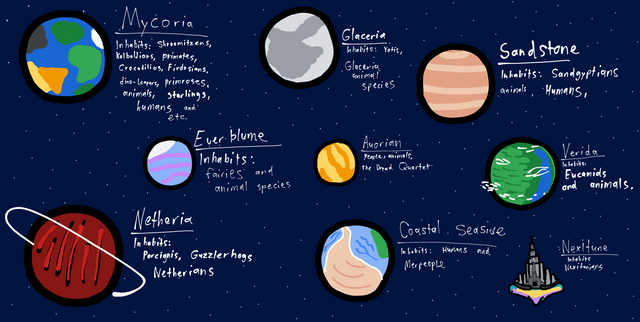 Mycoria
Inhabits: Shroomitzens,
Kolbollions, primates,
Crocotillos, Firdosians,
dino-leapers, primroses,
animals, starlings,
humans and
etc.
Glaceria
Inhabits: Yetis,
Glaceria
animal
species
Sandstone
Inhabits: Sandgyptians
animals, Humans,
Everblume
Inhabits:
fairies and
animal species
Auorian
People, animals,
The Dread Quartet
Verida
Inhabits:
Eucanids
and animals.
Netheria
Inhabits:
Porcignis, Guzzlerhogs
Netherians
Coastal Seasive
Inhabits: Humans and
Merpeople
Nexitune
Inhabits